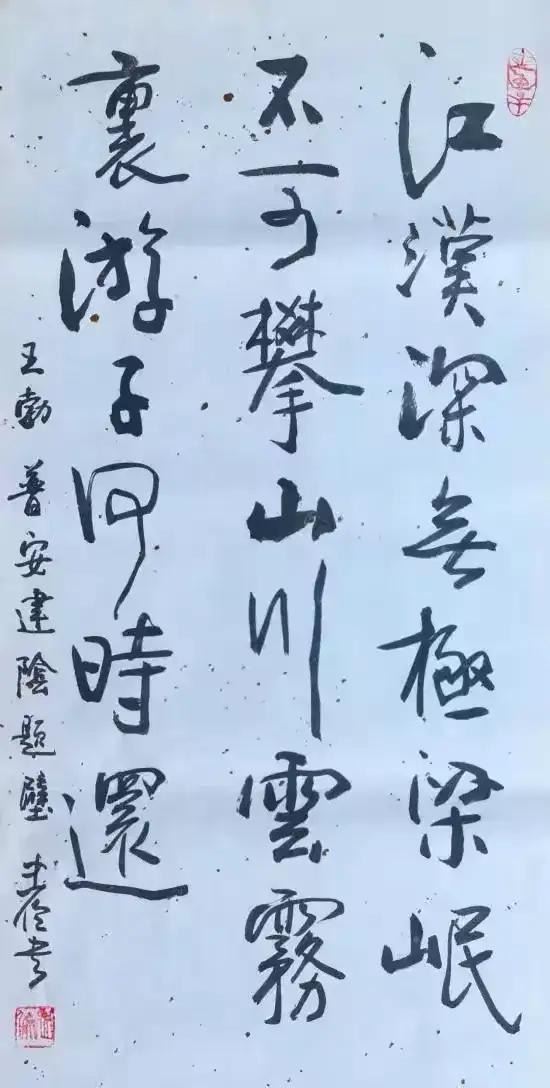 江漢深無極梁岷
不可攀山川雲霧
裏游子何時還
王勃 普安建陰題壁 書